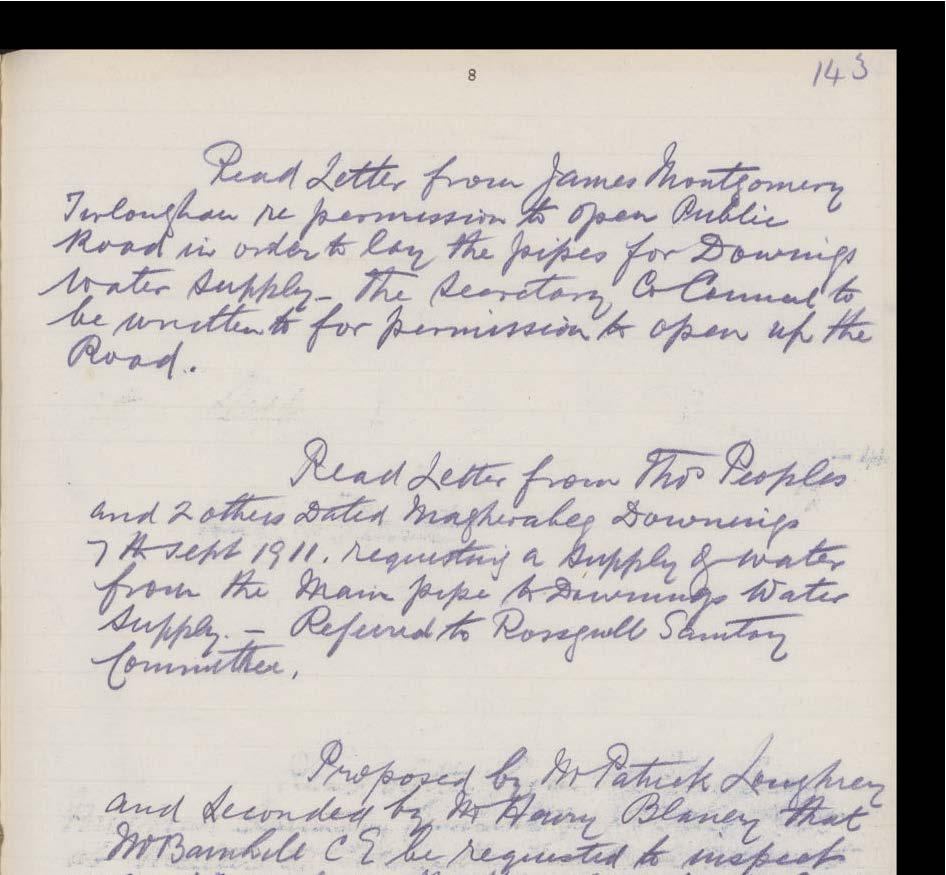 8
143
Read Letter from James Montgomery
Turloughan re permission to open Public
Road in order to lay the pipes for Downings
Water Supply – The Secretary Co Council to
be written to for permission to open up the
Road.
Read Letter from Thos Peoples
and 2 others Dated Magherabeg Downings
7th Sept 1911. requesting a supply of water
from the Main pipe to Downings Water
Supply. – Referred to Rossguill Sanitary
Committee.
Proposed by Mr Patrick Loughrey
and Seconded by Mr Harry Blaney that
Mr Barnhill C E be requested to inspect